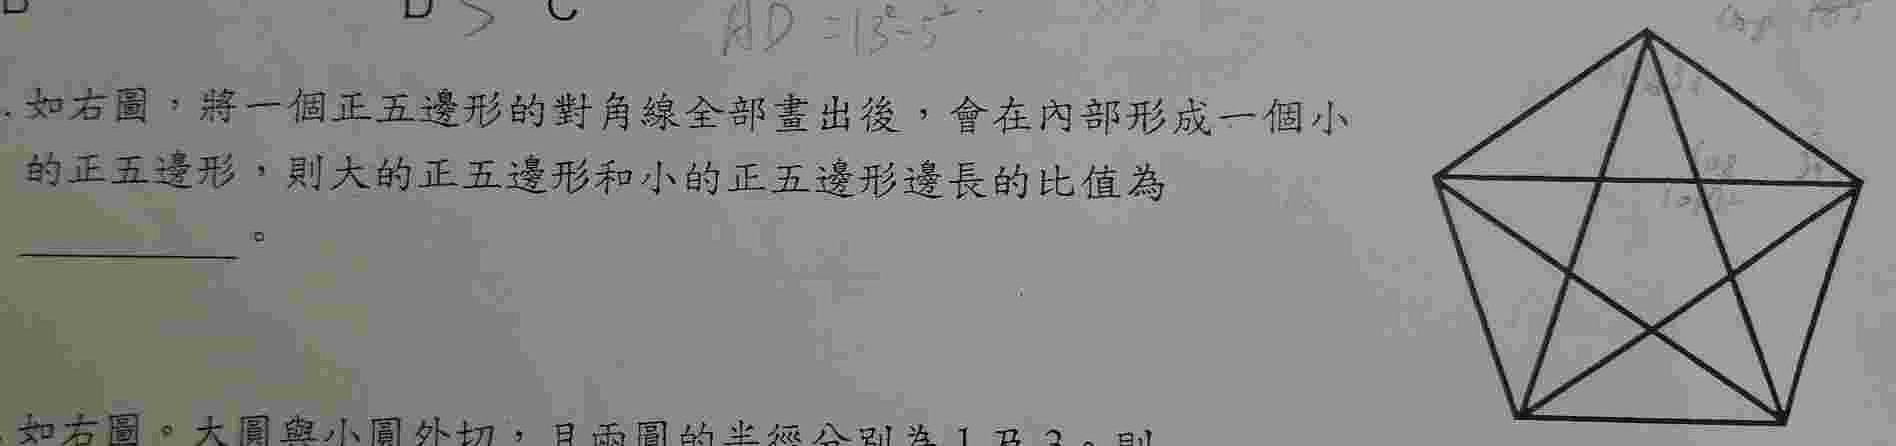 D > C
AD = 13² - 5²
如右圖，將一個正五邊形的對角線全部畫出後，會在內部形成一個小
的正五邊形，則大的正五邊形和小的正五邊形邊長的比值為
。
如右圖。大圓與小圓外切，且兩圓的半徑分別為1及3。則